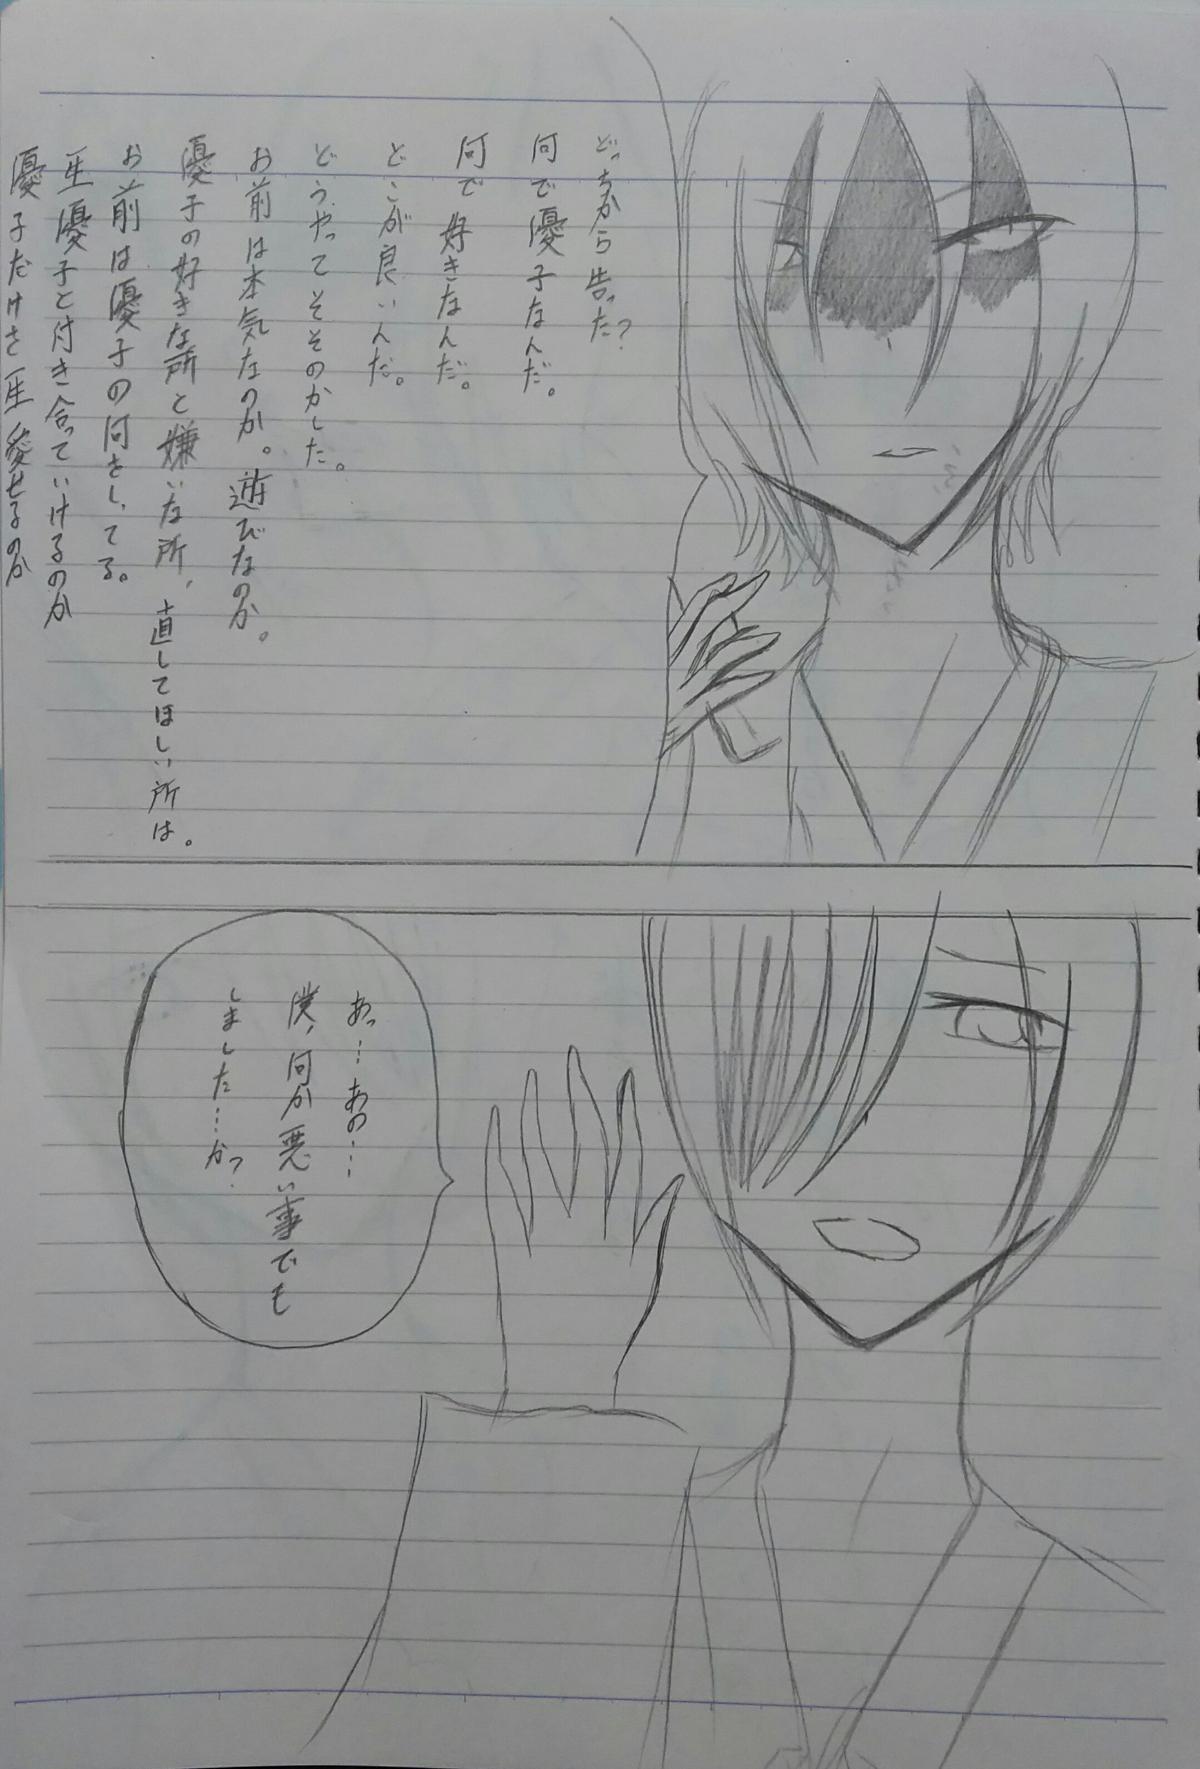 どっちから告った?
何で優子なんだ。
何で好きなんだ。
どこが良いんだ。
どうやってそそのかした。
お前は本気なのか。遊びなのか。
優子の好きな所と嫌いな所、直してほしい所は。
お前は優子の何をしてる。
一生優子と付き合っていけるのか
優子だけを一生愛せるのか
あっ…あの…
僕、何か悪い事でも
しました…か?